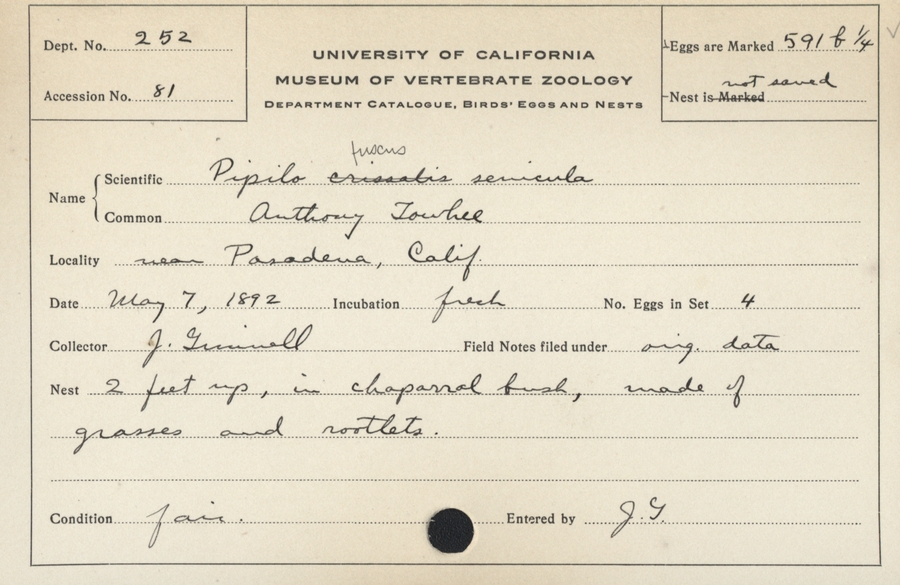 Dept. No. 252
Accession No. 81
UNIVERSITY OF CALIFORNIA
MUSEUM OF VERTEBRATE ZOOLOGY
DEPARTMENT CATALOGUE, BIRDS' EGGS AND NESTS
Eggs are Marked 591 b 1/4
not saved
Nest is Marked
fuscus
Name
Scientific Pipilo crissalis senicula
Common Anthony Towhee
Locality near Pasadena, Calif.
Date May 7, 1892 Incubation fresh No. Eggs in Set 4
Collector J. Grinnell Field Notes filed under orig. data
Nest 2 feet up, in chaparral bush, made of
grasses and rootlets.
Condition fair. Entered by J.G.